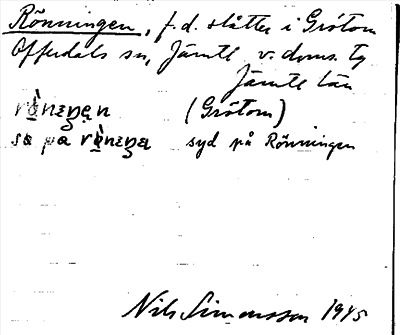 Rönningen, f.d. slåtter i Grötom
Offerdals sn, Jämtl v. doms. tg
Jämtl län
(Grötom)
syd på Rönningen
Nils Simonsson 1945